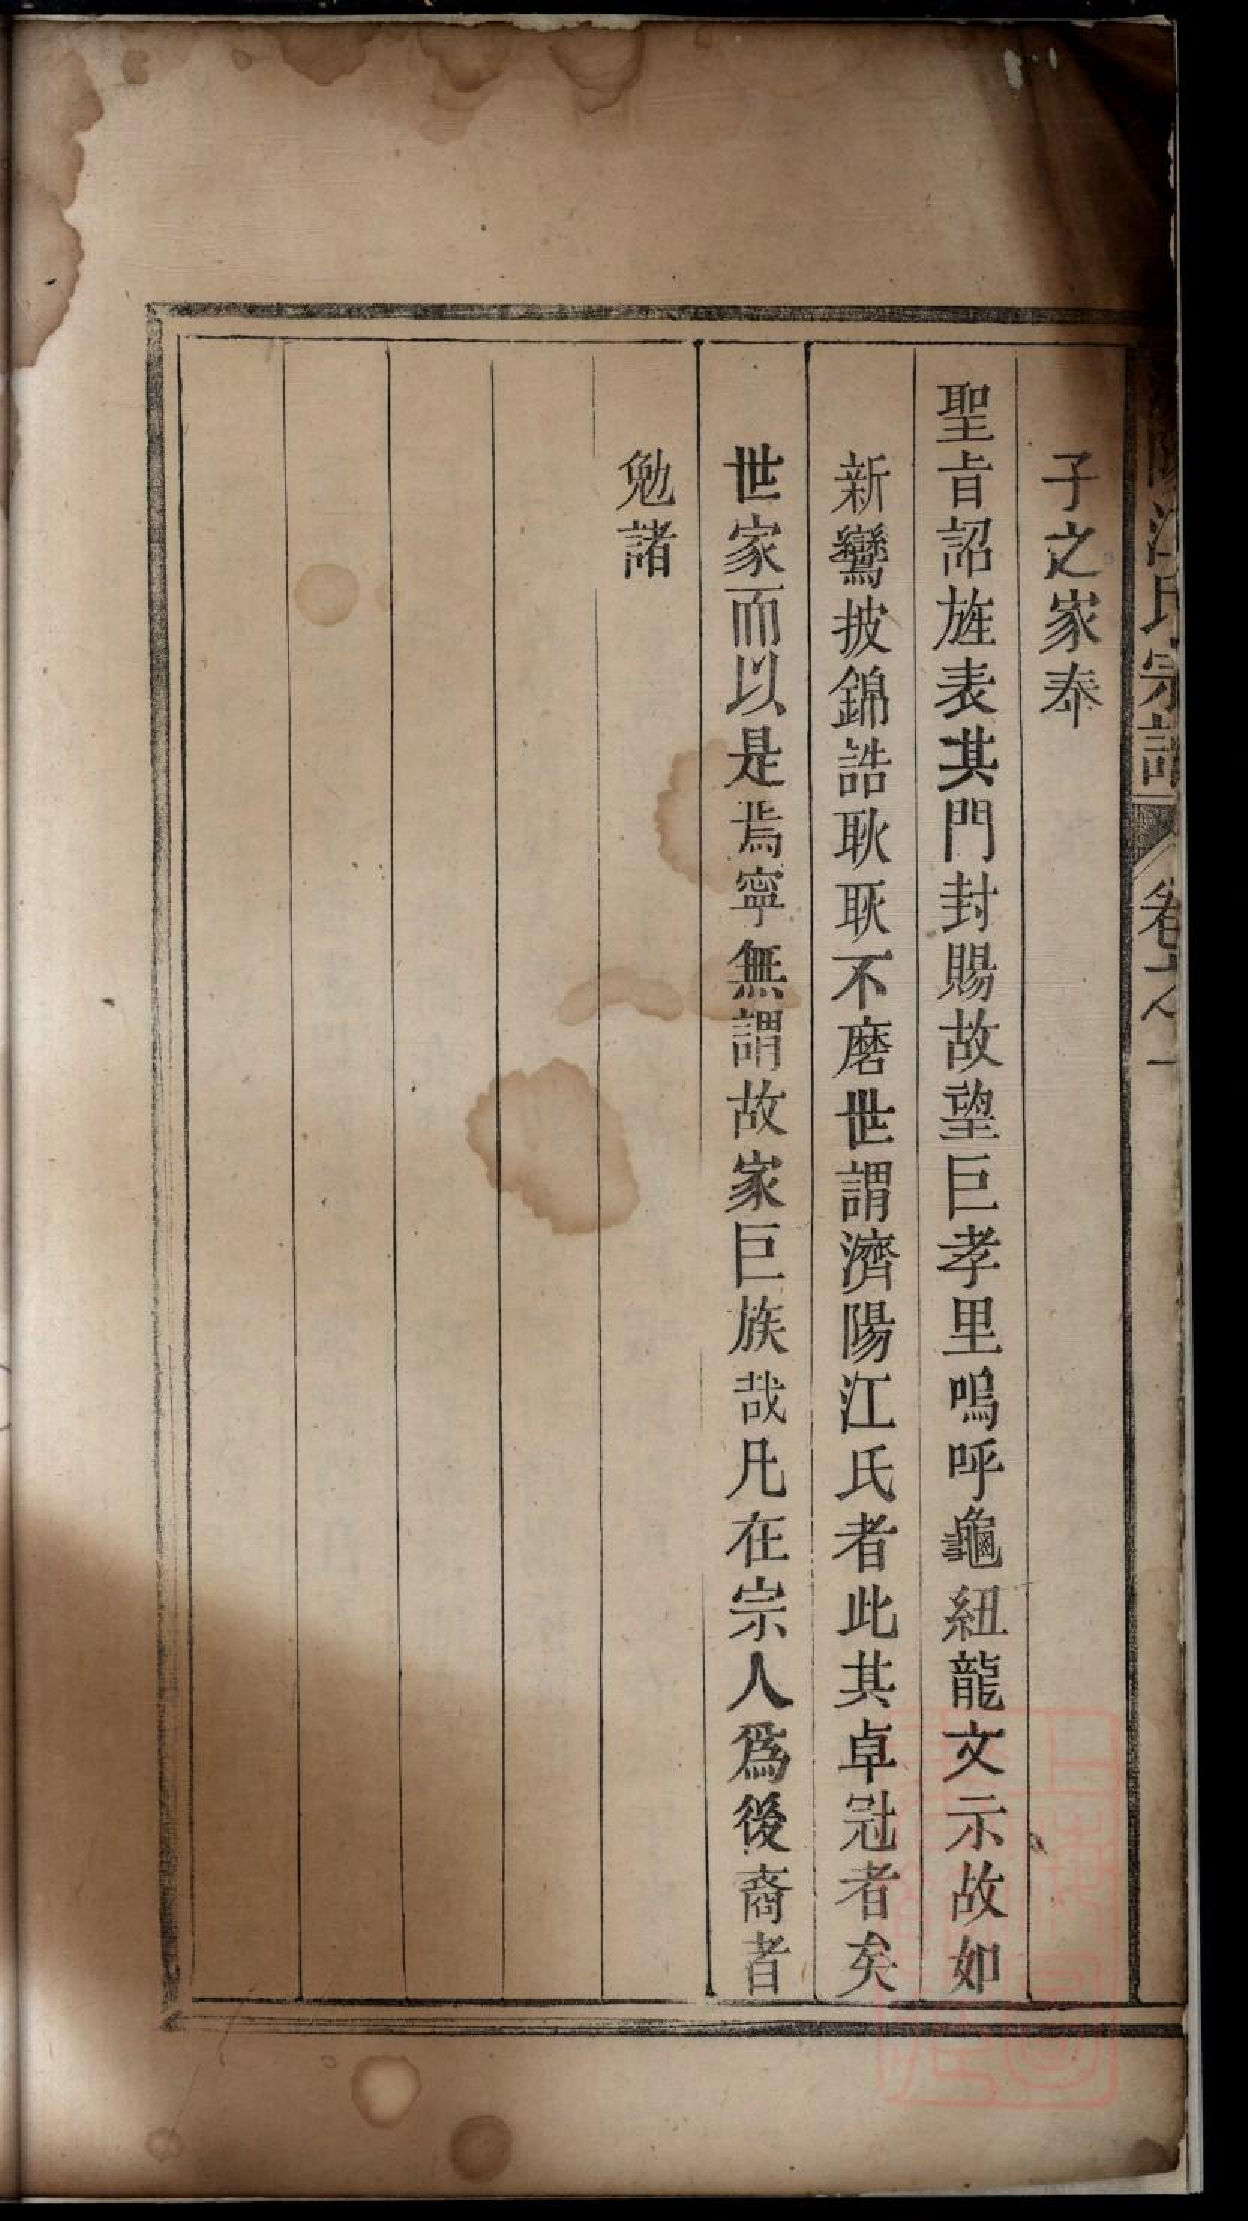 子之家奉
聖㫖詔旌表其門封賜故望巨孝里嗚呼龜紐龍文示故如
新鸞披錦誥耿耿不磨世謂濟陽江氏者此其卓冠者矣
世家而以是焉寧無謂故家巨族哉凡在宗人爲後裔者
勉諸
陽江氏宗譜 卷